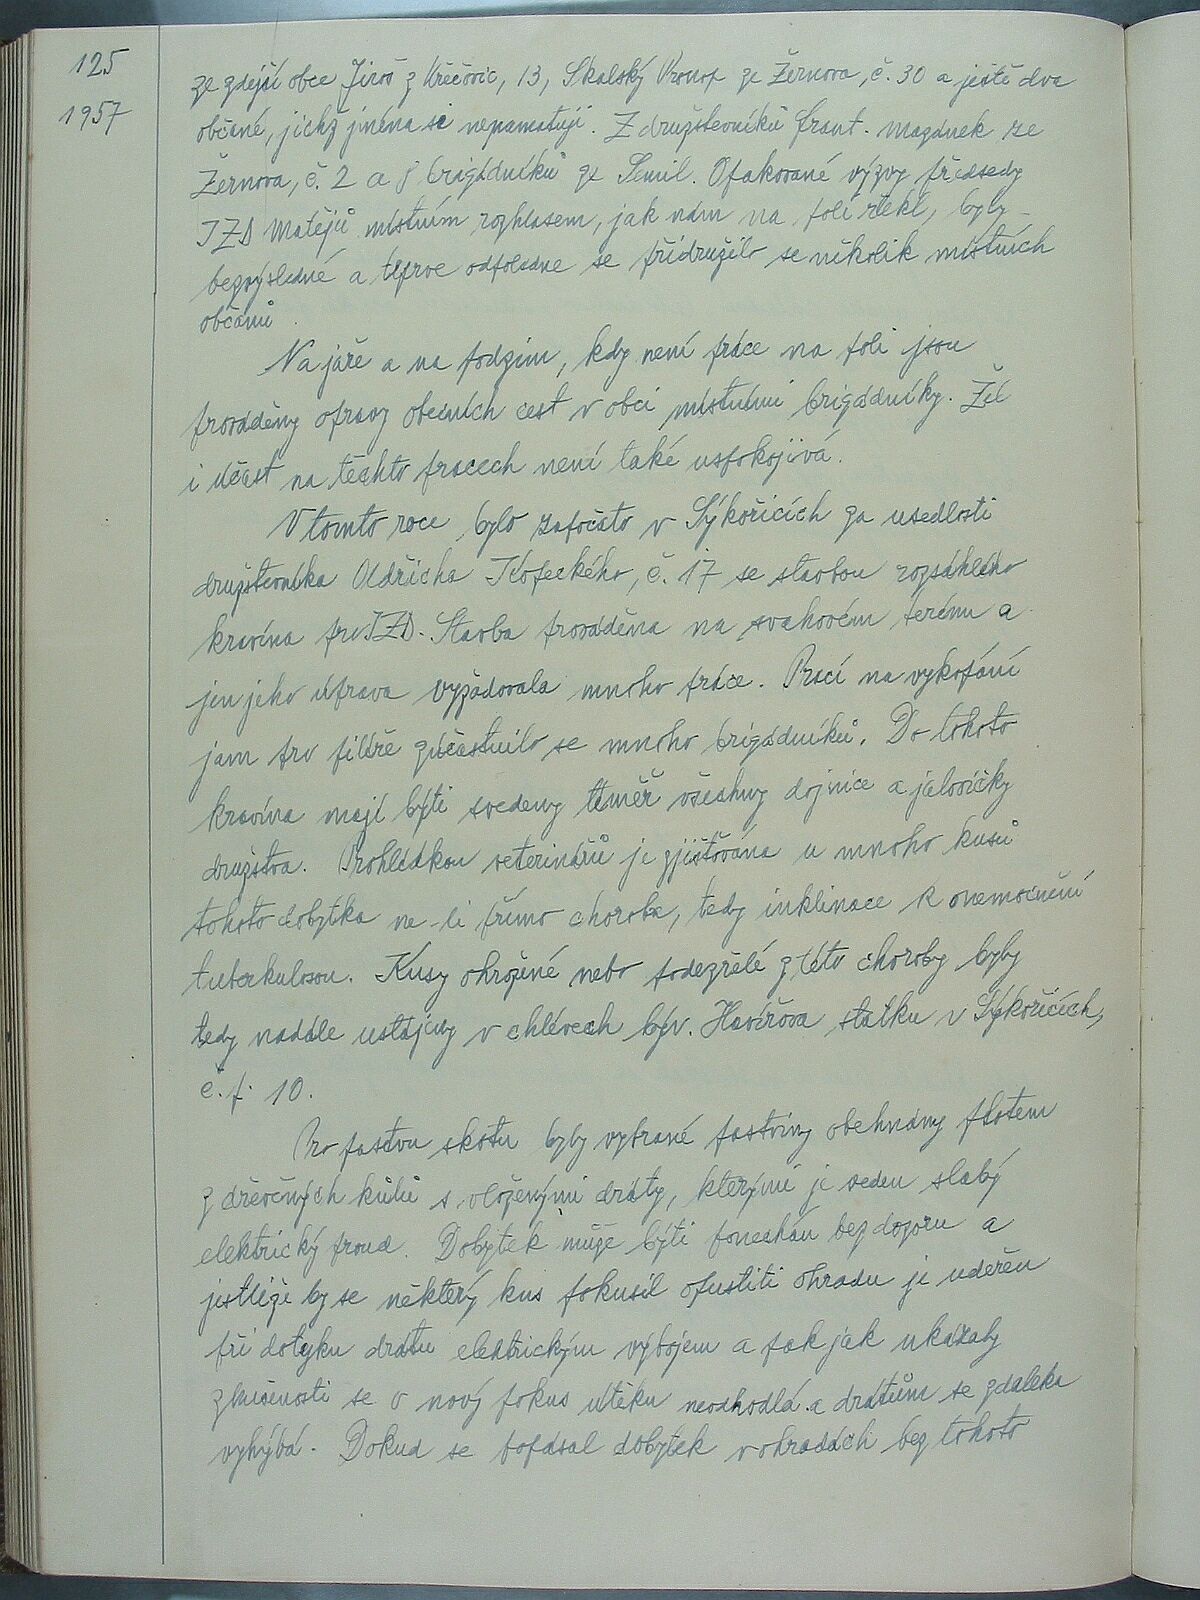 125
1957
ze zdejší obce Jiroš z Křečovic, 13, Skalský Prokop ze Žernova, č. 30 a ještě dva
občané, jichž jména si nepamatuji. Z družstevníků Frant. Mazánek ze
Žernova, č. 2 a 8 brigádníků ze Semil. Opakované výzvy předsedy
JZD Matějů místním rozhlasem, jak nám na poli řekl, byly
bezvýsledné a teprve odpoledne se přidružilo se několik místních
občanů.
Na jaře a na podzim, kdy není práce na poli jsou
prováděny opravy obecních cest v obci místními brigádníky. Žel
i účast na těchto pracech není také uspokojivá.
V tomto roce bylo započato v Sýkořicích za usedlostí
družstevníka Oldřicha Kopeckého, č. 17 se stavbou rozsáhlého
kravína pro JZD. Stavba prováděna na svahovém terénu a
jen jeho úprava vyžadovala mnoho práce. Prací na vykopání
jam pro pilíře zúčastnilo se mnoho brigádníků. Do tohoto
kravína mají býti svedeny téměř všechny dojnice a jalovičky
družstva. Prohlídkou veterinářů je zjišťována u mnoho kusů
tohoto dobytka ne-li přímo choroba, tedy inklinace k onemocnění
tuberkulosou. Kusy ohrožené nebo podezřelé z této choroby byly
tedy nadále ustájeny v chlévech býv. Havířova statku v Sýkořicích,
č. p. 10.
Pro pastvu skotu byly vybrané pastviny obehnány plotem
z dřevěných kůlů s vloženými dráty, kterými je veden slabý
elektrický proud. Dobytek může býti ponechán bez dozoru a
jestliže by se některý kus pokusil opustiti ohradu je udeřen
při dotyku drátu elektrickým výbojem a pak jak ukázaly
zkušenosti se o nový pokus útěku neodhodlá a drátům se zdaleka
vyhýbá. Dokud se popásal dobytek v ohradách bez tohoto